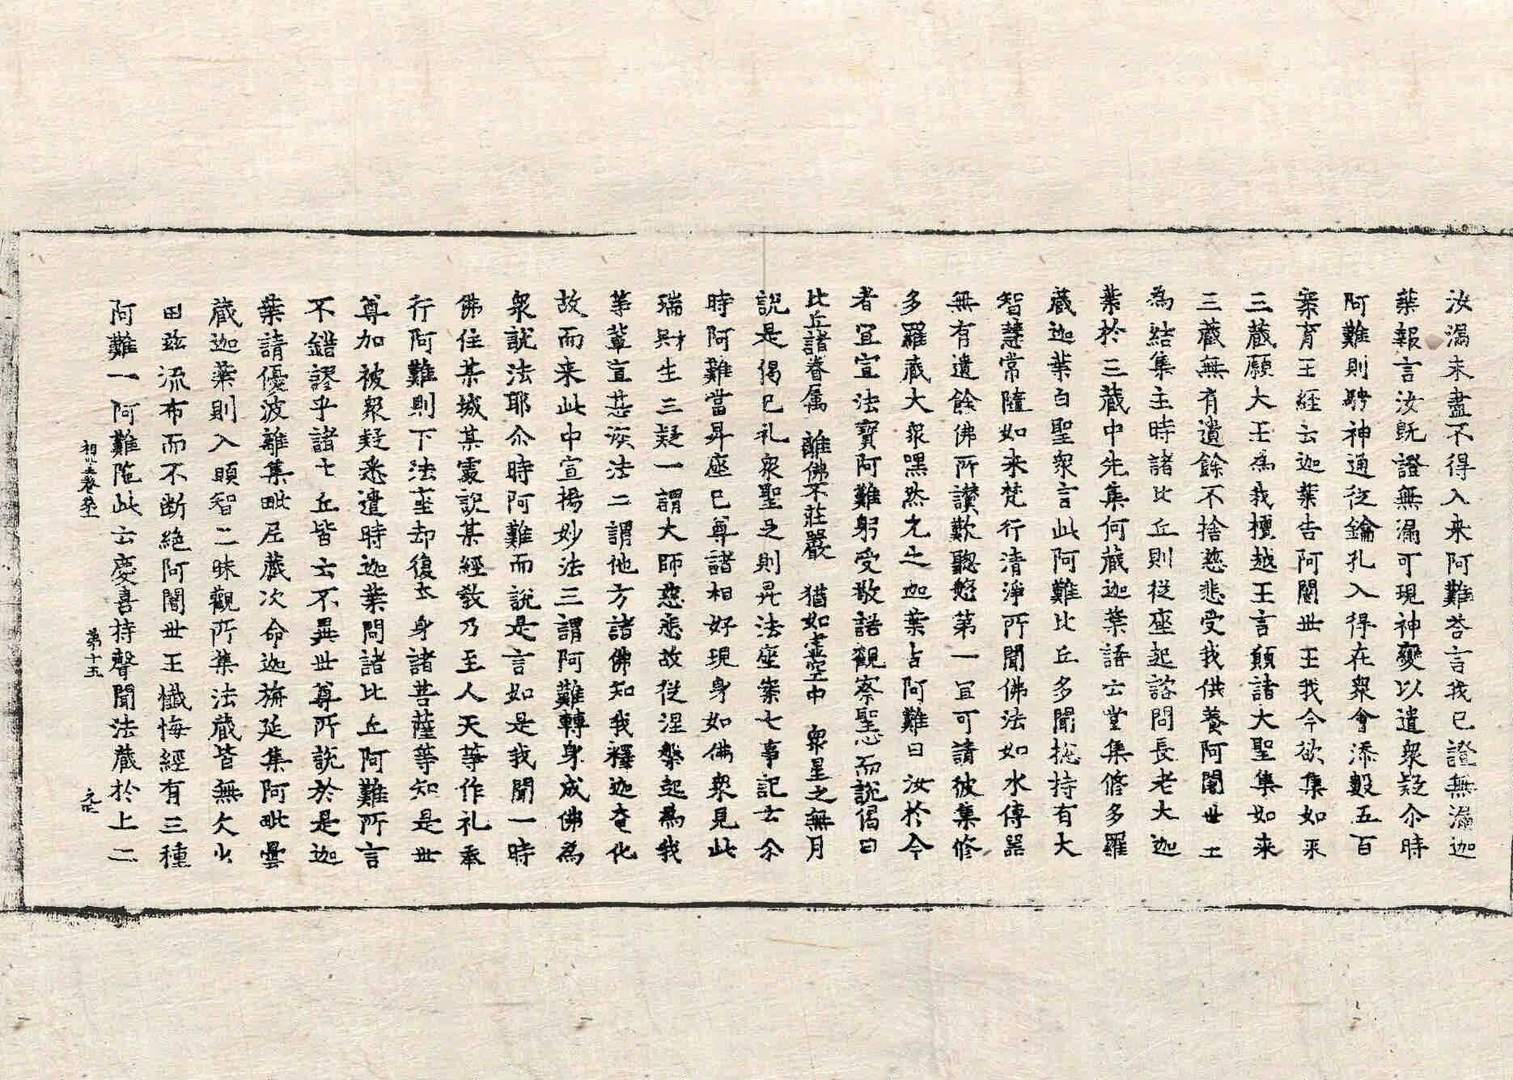 汝漏未盡不得入来阿難荅言我已證無漏迦
葉報言汝旣證無漏可現神變以遣衆疑尒時
阿難則騁神通從鑰孔入得在衆會添數五百
案育王經云迦葉告阿闍世王我今欲集如来
三藏願大王為我檀越王言願諸大聖集如来
三藏無有遺餘不捨慈悲受我供養阿闍世王
為結集主時諸比丘則從座起諮問長老大迦
葉於三藏中先集何藏迦葉語云當集修多羅
藏迦葉白聖衆言此阿難比丘多聞捴持有大
智慧常隨如来梵行清淨所聞佛法如水傳器
無有遺餘佛所讃歎聽慜第一宜可請彼集修
多羅藏大衆嘿然允之迦葉占阿難曰汝於今
者宜宣法寶阿難躬受敬諾觀察聖心而說偈曰
比丘諸眷属 離佛不莊嚴 猶如虛空中 衆星之無月
說是偈已礼衆聖足則昇法座案七事記云尒
時阿難當昇座已尊諸相好現身如佛衆見此
瑞則生三疑一謂大師慈悲故從涅槃起為我
等輩宣甚深法二謂他方諸佛知我釋迦奄化
故而来此中宣揚妙法三謂阿難轉身成佛為
衆說法耶尒時阿難而說是言如是我聞一時
佛住某城某處說某經敎乃至人天等作礼奉
行阿難則下法座却復夲身諸菩薩等知是世
尊加被衆疑悉遣時迦葉問諸比丘阿難所言
不錯謬乎諸比丘皆云不異世尊所說於是迦
葉請優波離集毗尼藏次命迦旃延集阿毗曇
藏迦葉則入頤智二昧觀所集法藏皆無欠少
田兹流布而不断絶阿闍世王懺悔經有三種
阿難一阿難陁此云慶喜持聲聞法藏於上二
第十五